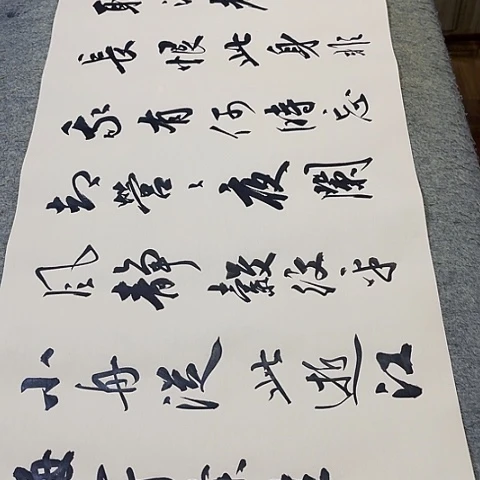 長恨此身非
我有何時忘
却營〻夜闌
風靜縠紋平
小舟從此逝江